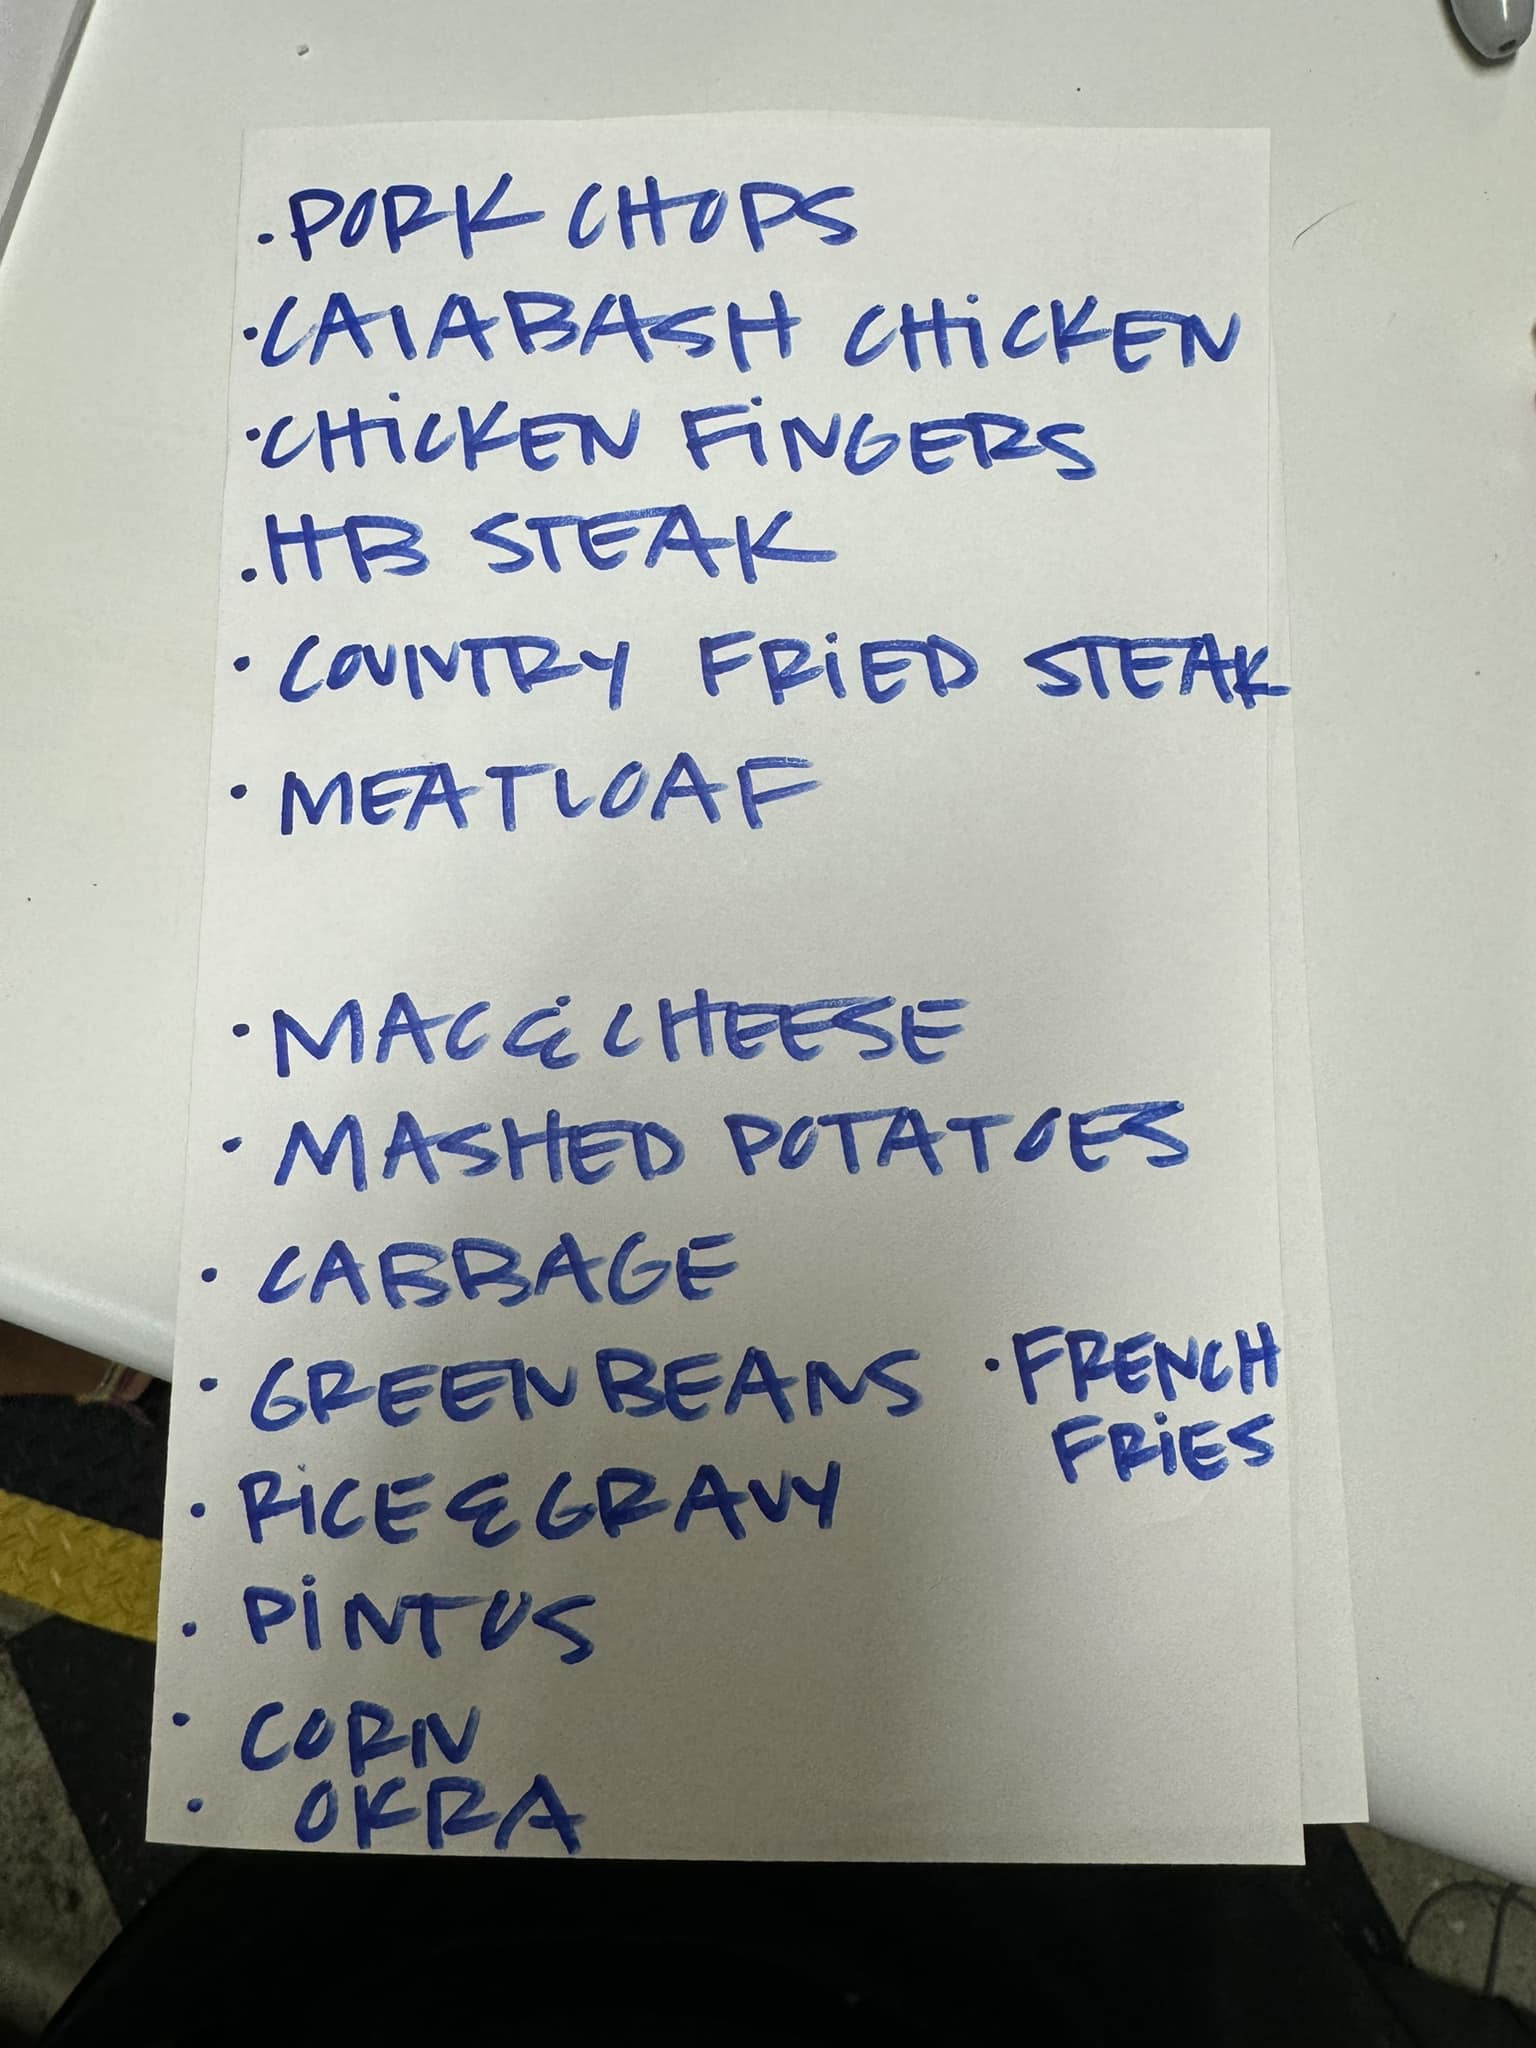 · PORK CHOPS
· CALABASH CHICKEN
· CHICKEN FINGERS
· HB STEAK
· COUNTRY FRIED STEAK
· MEATLOAF
· MAC & CHEESE
· MASHED POTATOES
· CABBAGE
· GREEN BEANS
· FRENCH
FRIES
· RICE & GRAVY
· PINTOS
· CORN
· OKRA